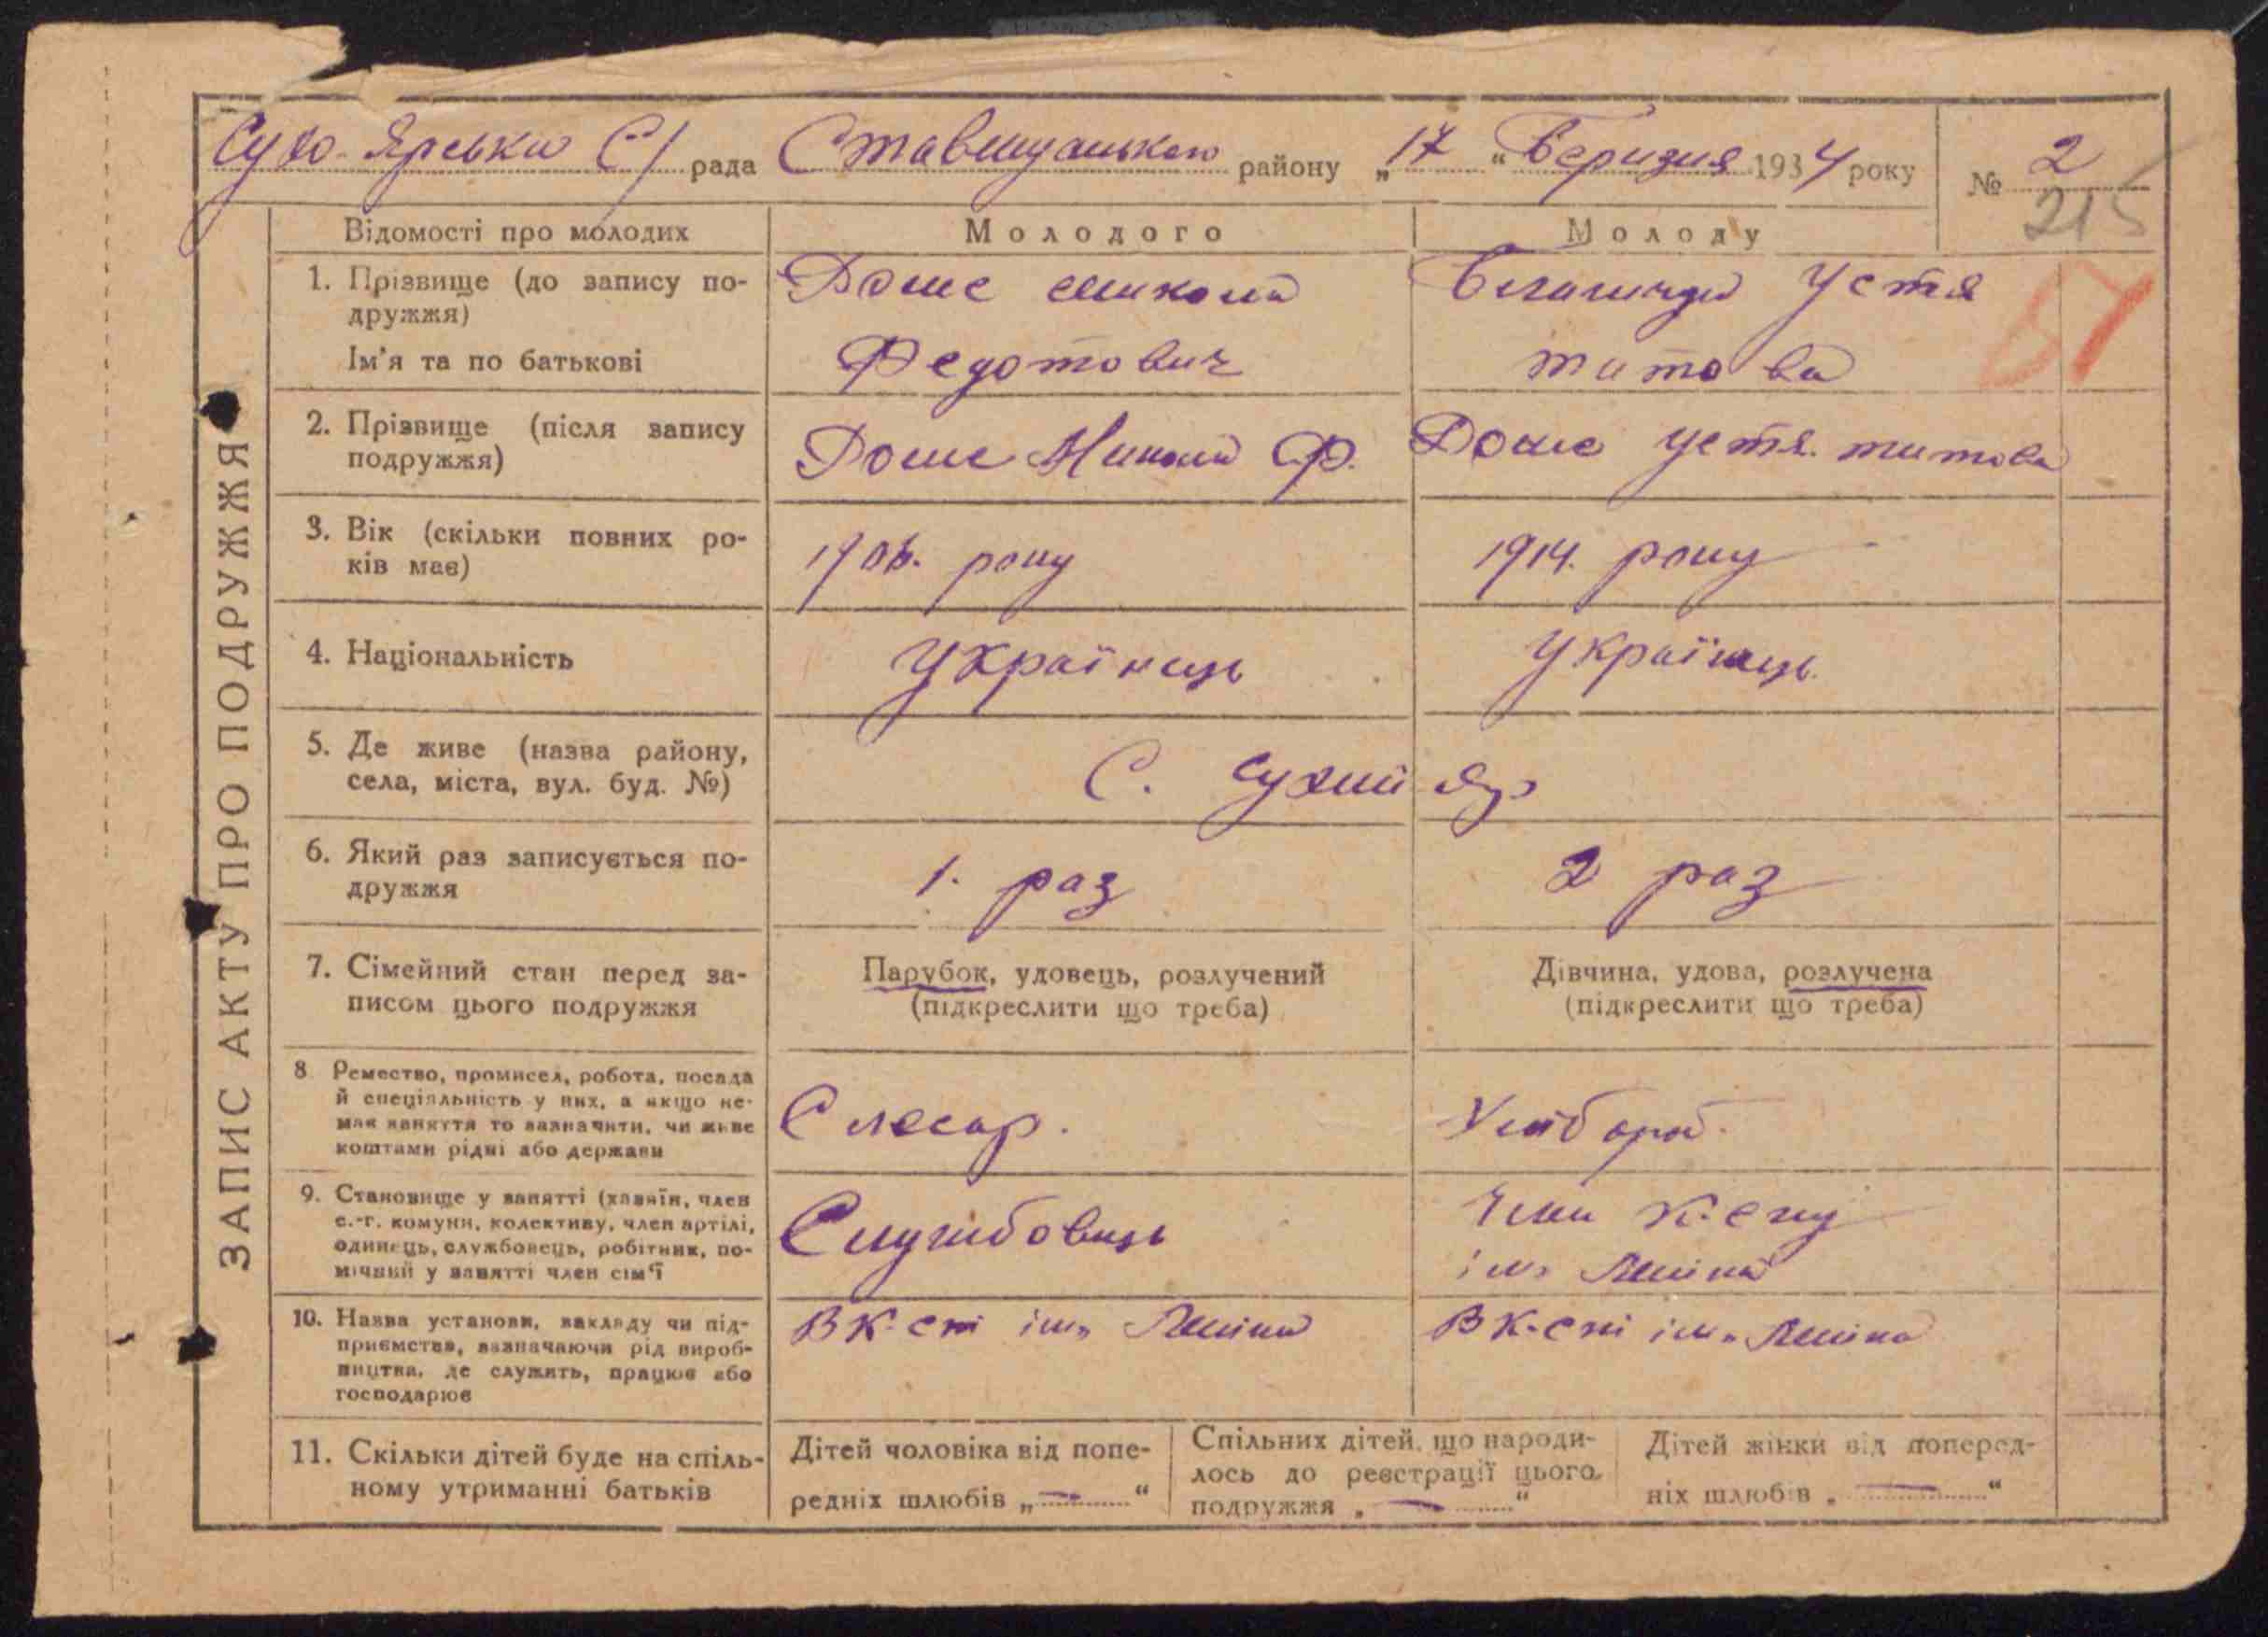 Сухо-Ярська С/рада Ставищанського району „17“ Березня 1934 року № 2
215
ЗАПИС АКТУ ПРО ПОДРУЖЖЯ
Відомості про молодих Молодого Молоду
1. Прізвище (до запису по-
дружжя)
Доше Микола Устя
Ім'я та по батькові
Федотович Титова
2. Прізвище (після запису
подружжя)
Доше Микола Ф. Доше Устя Титова
3. Вік (скільки повних ро-
ків має)
року 1914. року
4. Національність
Українець Українець
5. Де живе (назва району,
села, міста, вул. буд. №)
С. Сухий Яр
6. Який раз записується по-
дружжя
1. раз 2 раз
7. Сімейний стан перед за-
писом цього подружжя
Парубок, удовець, розлучений
(підкреслити що треба)
Дівчина, удова, розлучена
(підкреслити що треба)
8 Ремество, промисел, робота, посада
й спеціяльність у них, а якщо не-
має заняття то зазначити, чи живе
коштами рідні або держави
Слесар. Хлібороб.
9. Становище у занятті (хазяїн, член
с.-г. комуни, колективу, член артілі,
одинець, службовець, робітник, по-
мічний у занятті член сім'ї
Службовець Член К-спу
ім. Леніна
10. Назва установи, закладу чи під-
приємства, зазначаючи рід вироб-
ництва, де служить, працює або
господарює
В К-спі ім. Леніна В К-спі ім. Леніна
11. Скільки дітей буде на спіль-
ному утриманні батьків
Дітей чоловіка від попе-
редніх шлюбів „—“
Спільних дітей, що народи-
лось до реєстрації цього
подружжя „—“
Дітей жінки від поперед-
ніх шлюбів „—“